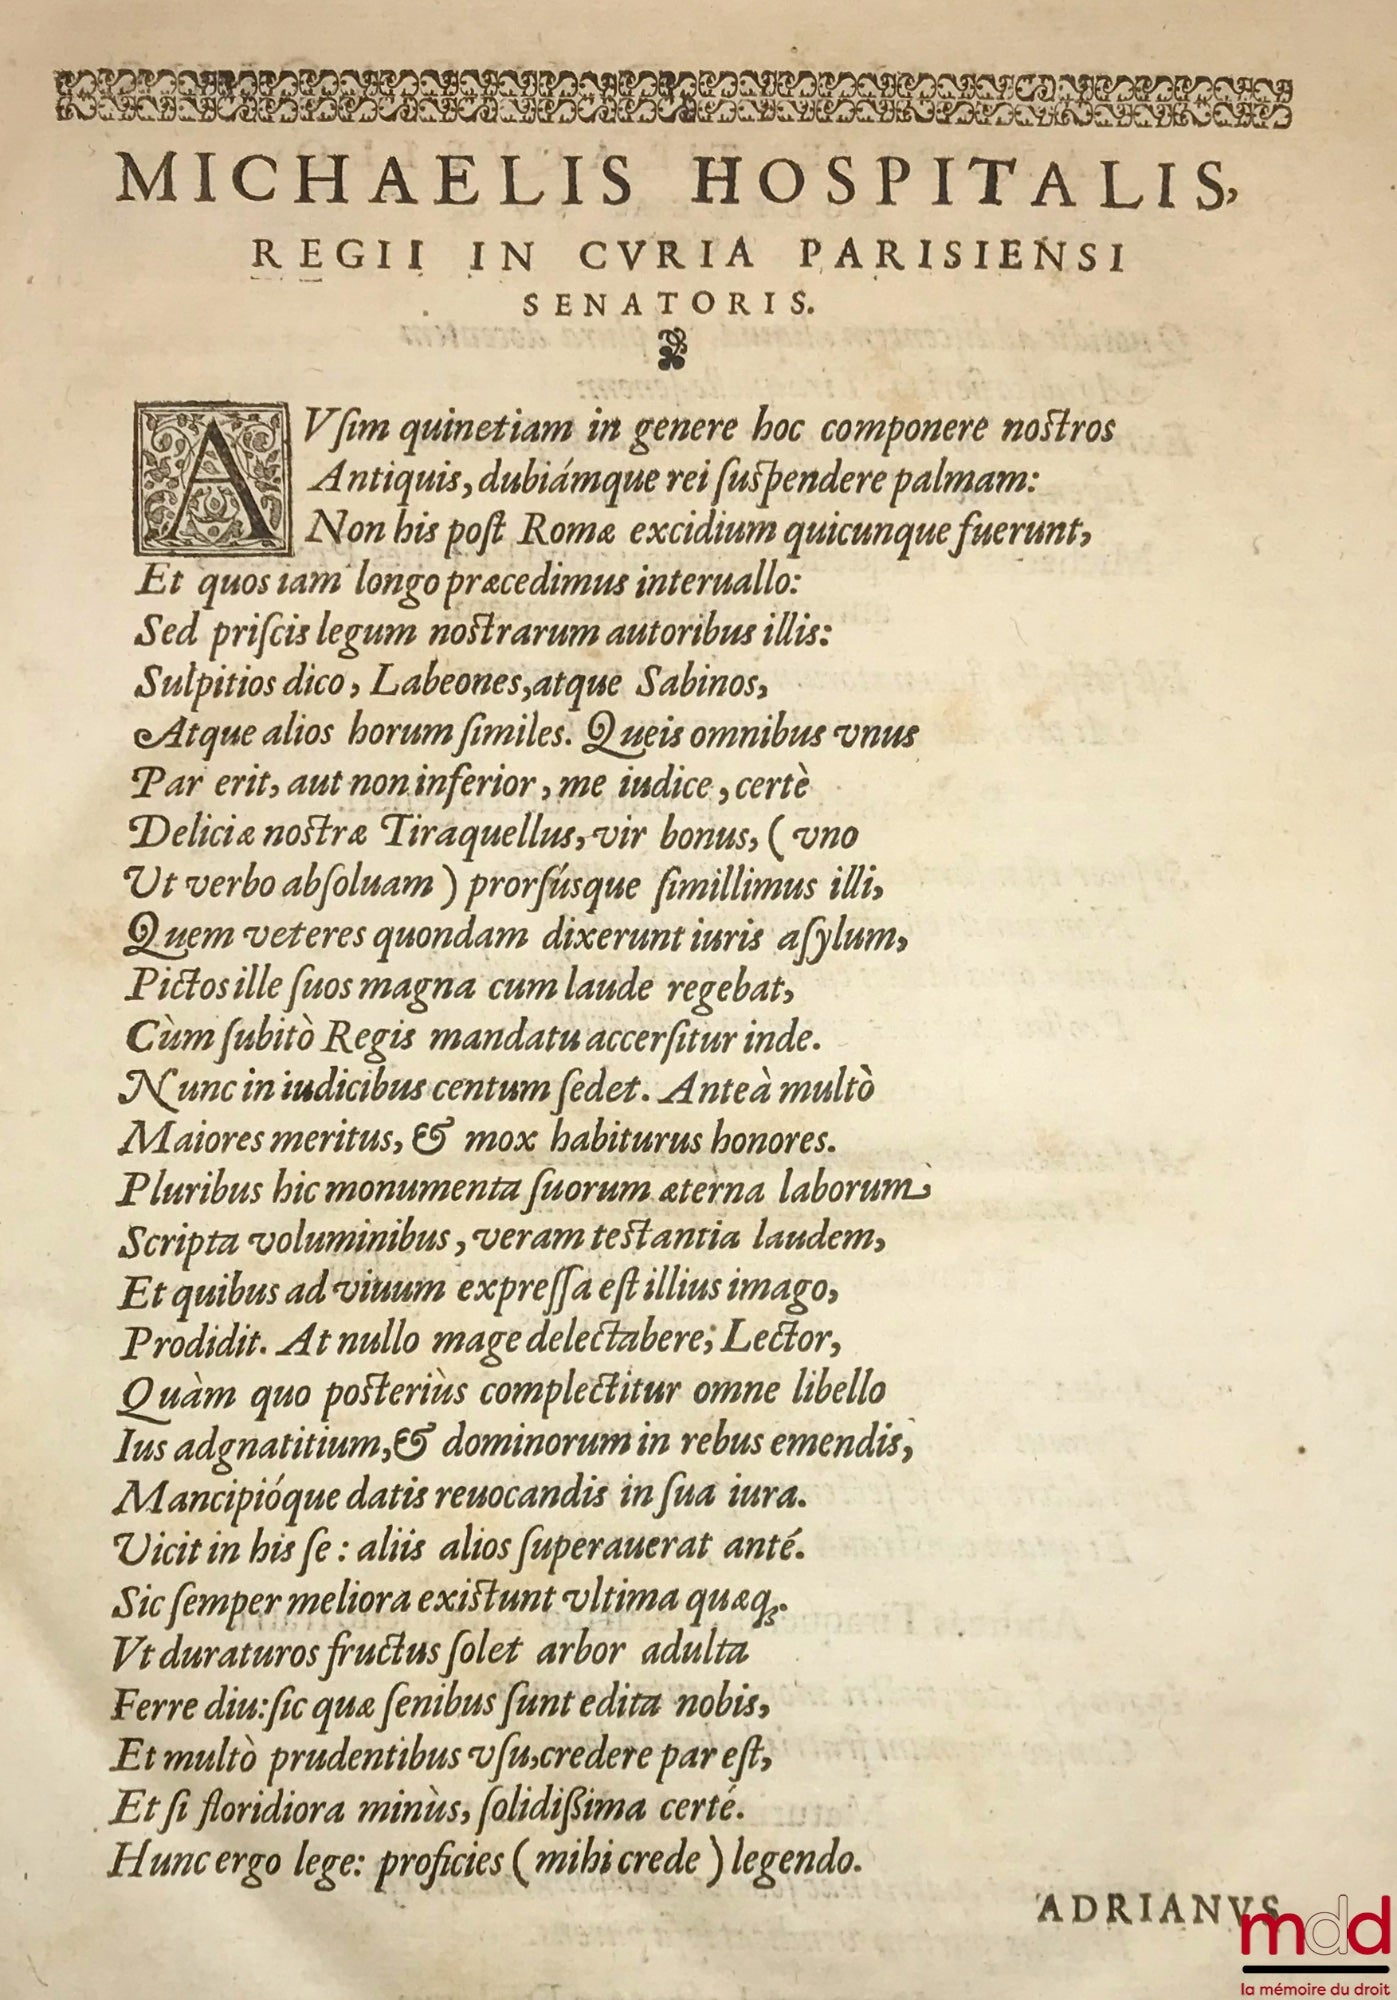 MICHAELIS HOSPITALIS,
REGII IN CVRIA PARISIENSI
SENATORIS.
AVſim quinetiam in genere hoc componere nostros
Antiquis, dubiámque rei ſuſpendere palmam:
Non his poſt Romæ excidium quicunque fuerunt,
Et quos iam longo præcedimus interuallo:
Sed priſcis legum nostrarum autoribus illis:
Sulpitios dico, Labeones, atque Sabinos,
Atque alios horum ſimiles. Queis omnibus vnus
Par erit, aut non inferior, me iudice, certè
Deliciæ nostræ Tiraquellus, vir bonus, (vno
Ut verbo abſoluam) prorſúsque ſimillimus illi,
Quem veteres quondam dixerunt iuris aſylum,
Pictos ille ſuos magna cum laude regebat,
Cùm ſubitò Regis mandatu accerſitur inde.
Nunc in iudicibus centum ſedet. Anteà multò
Maiores meritus, & mox habiturus honores.
Pluribus hic monumenta ſuorum æterna laborum,
Scripta voluminibus, veram testantia laudem,
Et quibus ad viuum expreſſa eſt illius imago,
Prodidit. At nullo mage delectabere, Lector,
Quàm quo posteriùs complectitur omne libello
Ius adgnatitium, & dominorum in rebus emendis,
Mancipióque datis reuocandis in ſua iura.
Vicit in his ſe: aliis alios ſuperauerat anté.
Sic ſemper meliora existunt vltima quæq;.
Vt duraturos fructus ſolet arbor adulta
Ferre diu: ſic quæ ſenibus ſunt edita nobis,
Et multò prudentibus vſu, credere par eſt,
Et ſi floridiora minùs, ſolidißima certé.
Hunc ergo lege: proficies (mihi crede) legendo.
ADRIANVS
mdd
la mémoire du droit